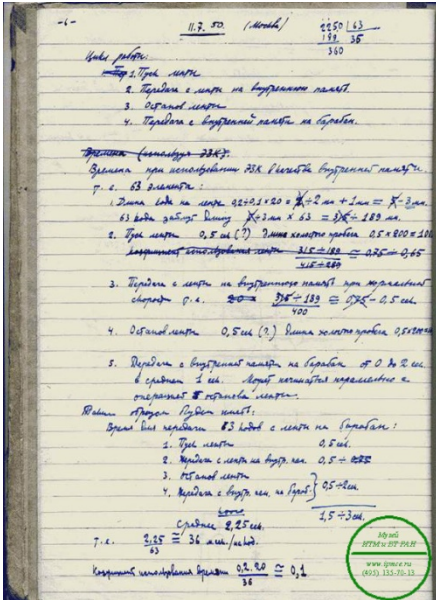 -6-
11.7.50. (Москва)
2250 | 63
189 35
360
Цикл работы:
1. Пуск ленты
2. Передача с ленты на внутреннюю память
3. Останов ленты
4. Передача с внутренней памяти на барабан.
Времена (используя ЭЗК).
Времена при использовании ЭЗК в качестве внутренней памяти.
т.е. 63 элемента:
1. Длина кода на ленте 0,2÷0,1×20 = ÷2 мм + 1 мм = ÷3 мм.
63 кода займут длину ÷3 мм × 63 = 315÷189 мм.
2. Пуск ленты 0,5 сек (?) Длина холостого пробега 0,5×200 = 100
коэффициент использования ленты 315÷189 / 415÷289 ≅ 0,75÷0,65
3. Передача с ленты на внутреннюю память при нормальной
скорости т.е. 315÷189 / 400 ≅ 0,75÷0,5 сек.
4. Останов ленты 0,5 сек (?) Длина холостого пробега 0,5×200
5. Передача с внутренней памяти на барабан от 0 до 2 сек.
в среднем 1 сек. Может начинаться параллельно с
операцией останова ленты.
Таким образом будем иметь:
Время для передачи 63 кодов с ленты на барабан:
1. Пуск ленты 0,5 сек.
2. Передача с ленты на внутр. пам. 0,5÷0,75
3. Останов ленты
4. Передача с внутр. пам. на бараб. } 0,5÷2 сек.
1,5÷3 сек.
Среднее 2,25 сек.
т.е. 2,25 / 63 ≅ 36 м сек/на код.
Коэффициент использования времени 0,2·20 / 36 ≅ 0,1
Музей
ИТМ и ВТ РАН
www.ipmce.ru
(495) 135-76-13